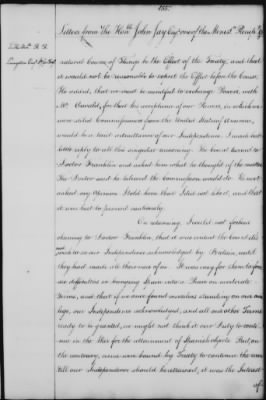 155
Letters from The Honble John Jay Esqr one of the Minist. Plenip.
To the Hon. R. R.
Livingston Esqr
natural Course of Things to be the Effect of the Treaty, and that
it would not be reasonable to expect the Effect before the Cause.
He added, that we must be mindful to exchange Powers with
Mr Oswald, for that his acceptance of our Powers, in which we
were stiled Commissioners from the United States of America,
would be a tacit admittance of our Independence. I made but
little reply to all this singular reasoning. The Count turned to
Doctor Franklin and asked him what he thought of the matter.
The Doctor said he believed the Commission would do. He next
asked my Opinion. I told him that I did not like it, and that
it was best to proceed cautiously.
On returning, I could not forbear
observing to Doctor Franklin, that it was evident the Court did
not wish to see our Independence acknowledged by Britain, until
they had made all their uses of us. It was easy for them to fore-
see difficulties in bringing Spain into a Peace on moderate
Terms, and that if we once found ourselves standing on our own
legs, our Independence acknowledged, and all our other Terms
ready to be granted, we might not think it our Duty to conti-
nue in the War for the attainment of Spanish objects. But, on
the contrary, as we were bound by Treaty to continue the War
till our Independence should be attained, it was the Interest
of